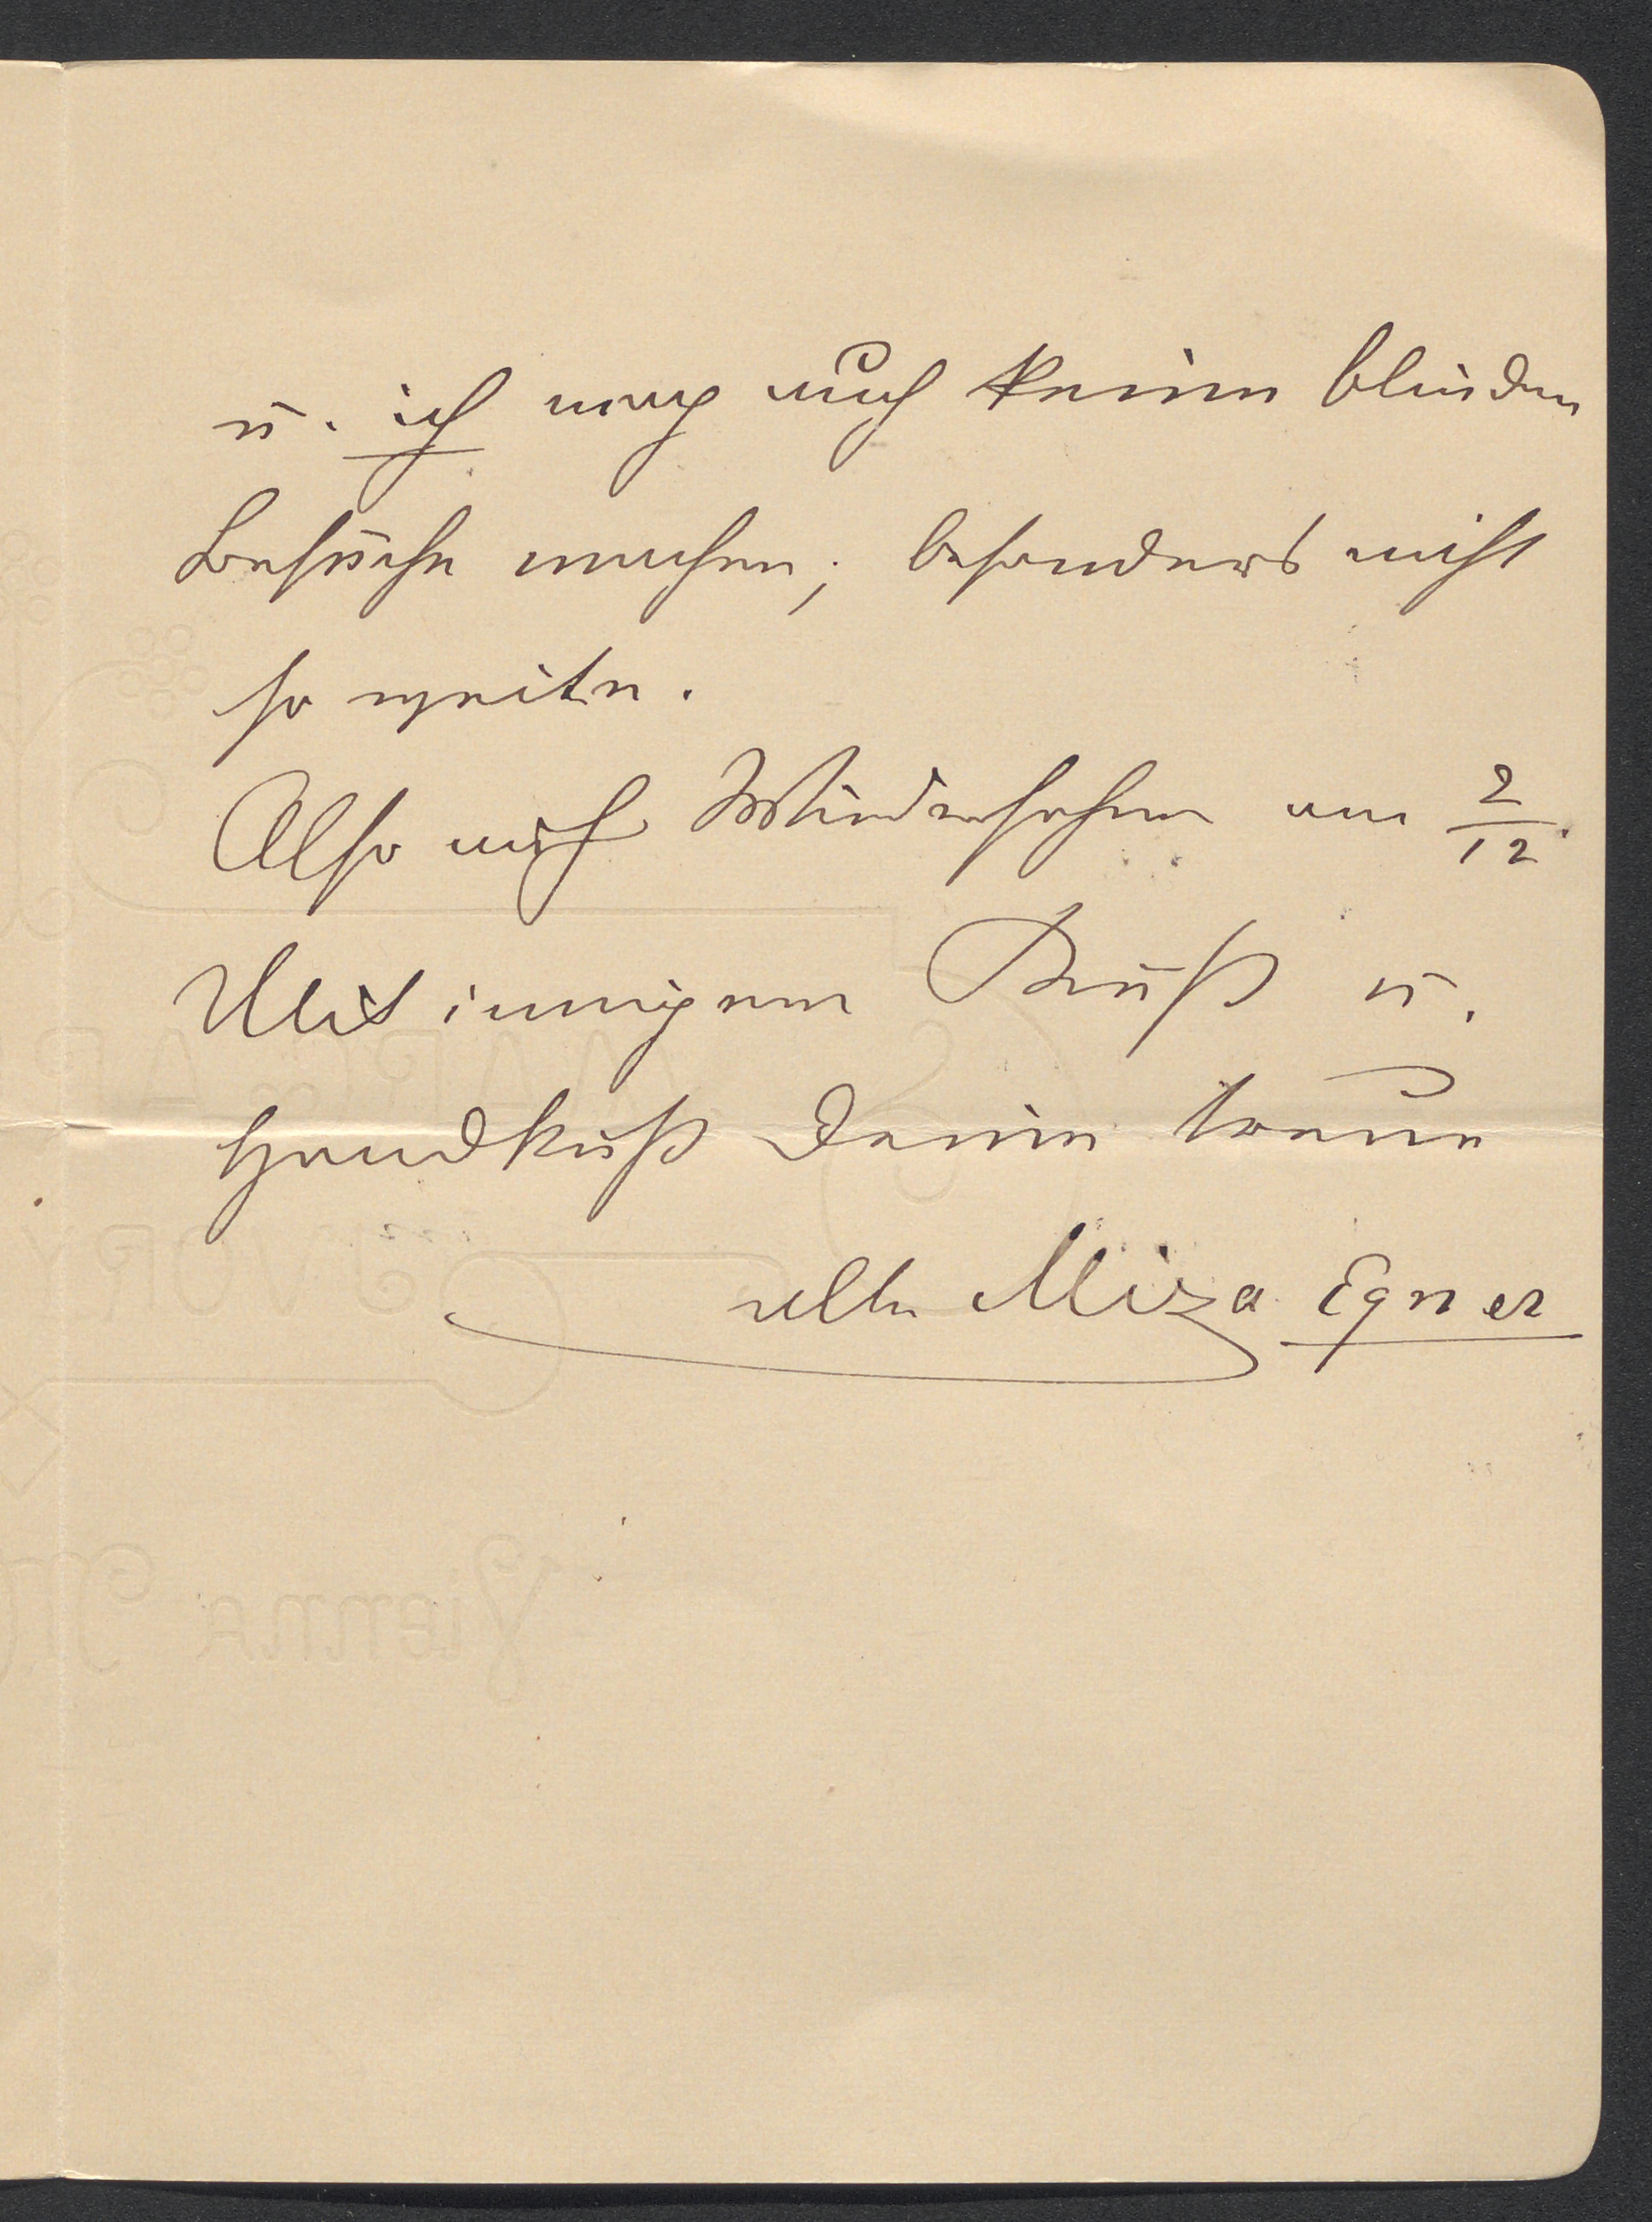 u. ich mag auch keine blinden
Besuche machen; besonders nicht
so weite.
Also auf Wiedersehen am 2/12.
Mit innigem Kuß u.
Handkuß Deine treue
alte Miza Egner